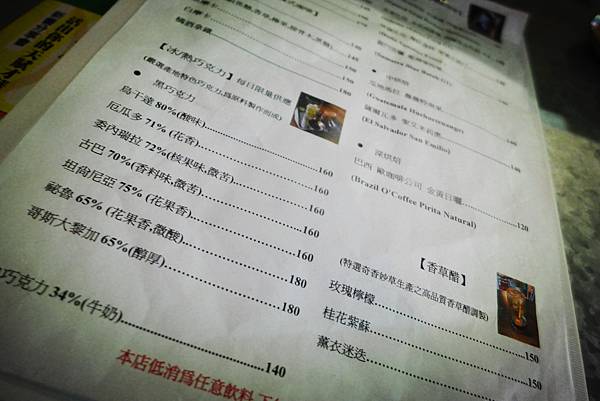 白摩卡
情酒拿鐵
140
150
180
【冰/熱巧克力】每日限量供應
(嚴選產地特色巧克力,爲原料製作而成)
● 黑巧克力
烏干達 80%(酸味)
厄瓜多 71% (花香) 160
委內瑞拉 72%(核果味,微苦) 160
古巴 70%(香料味,微苦) 160
坦尙尼亞 75% (花果香) 160
祕魯 65% (花果香,微酸) 180
哥斯大黎加 65%(醇厚) 180
巧克力 34%(牛奶) 140
本店低消爲任意飲料
● 中烘焙
(Guatemala Huehuetenango)
薩爾瓦多 聖艾米利奧 140
(El Salvador San Emilio)
140
● 深烘焙
巴西 歐咖啡公司 金黃日曬 120
(Brazil O'Coffee Pirita Natural)
【香草醋】
(特選奇香妙草生產之高品質香草醋調製)
玫瑰檸檬 150
桂花紫蘇 150
薰衣迷迭 150